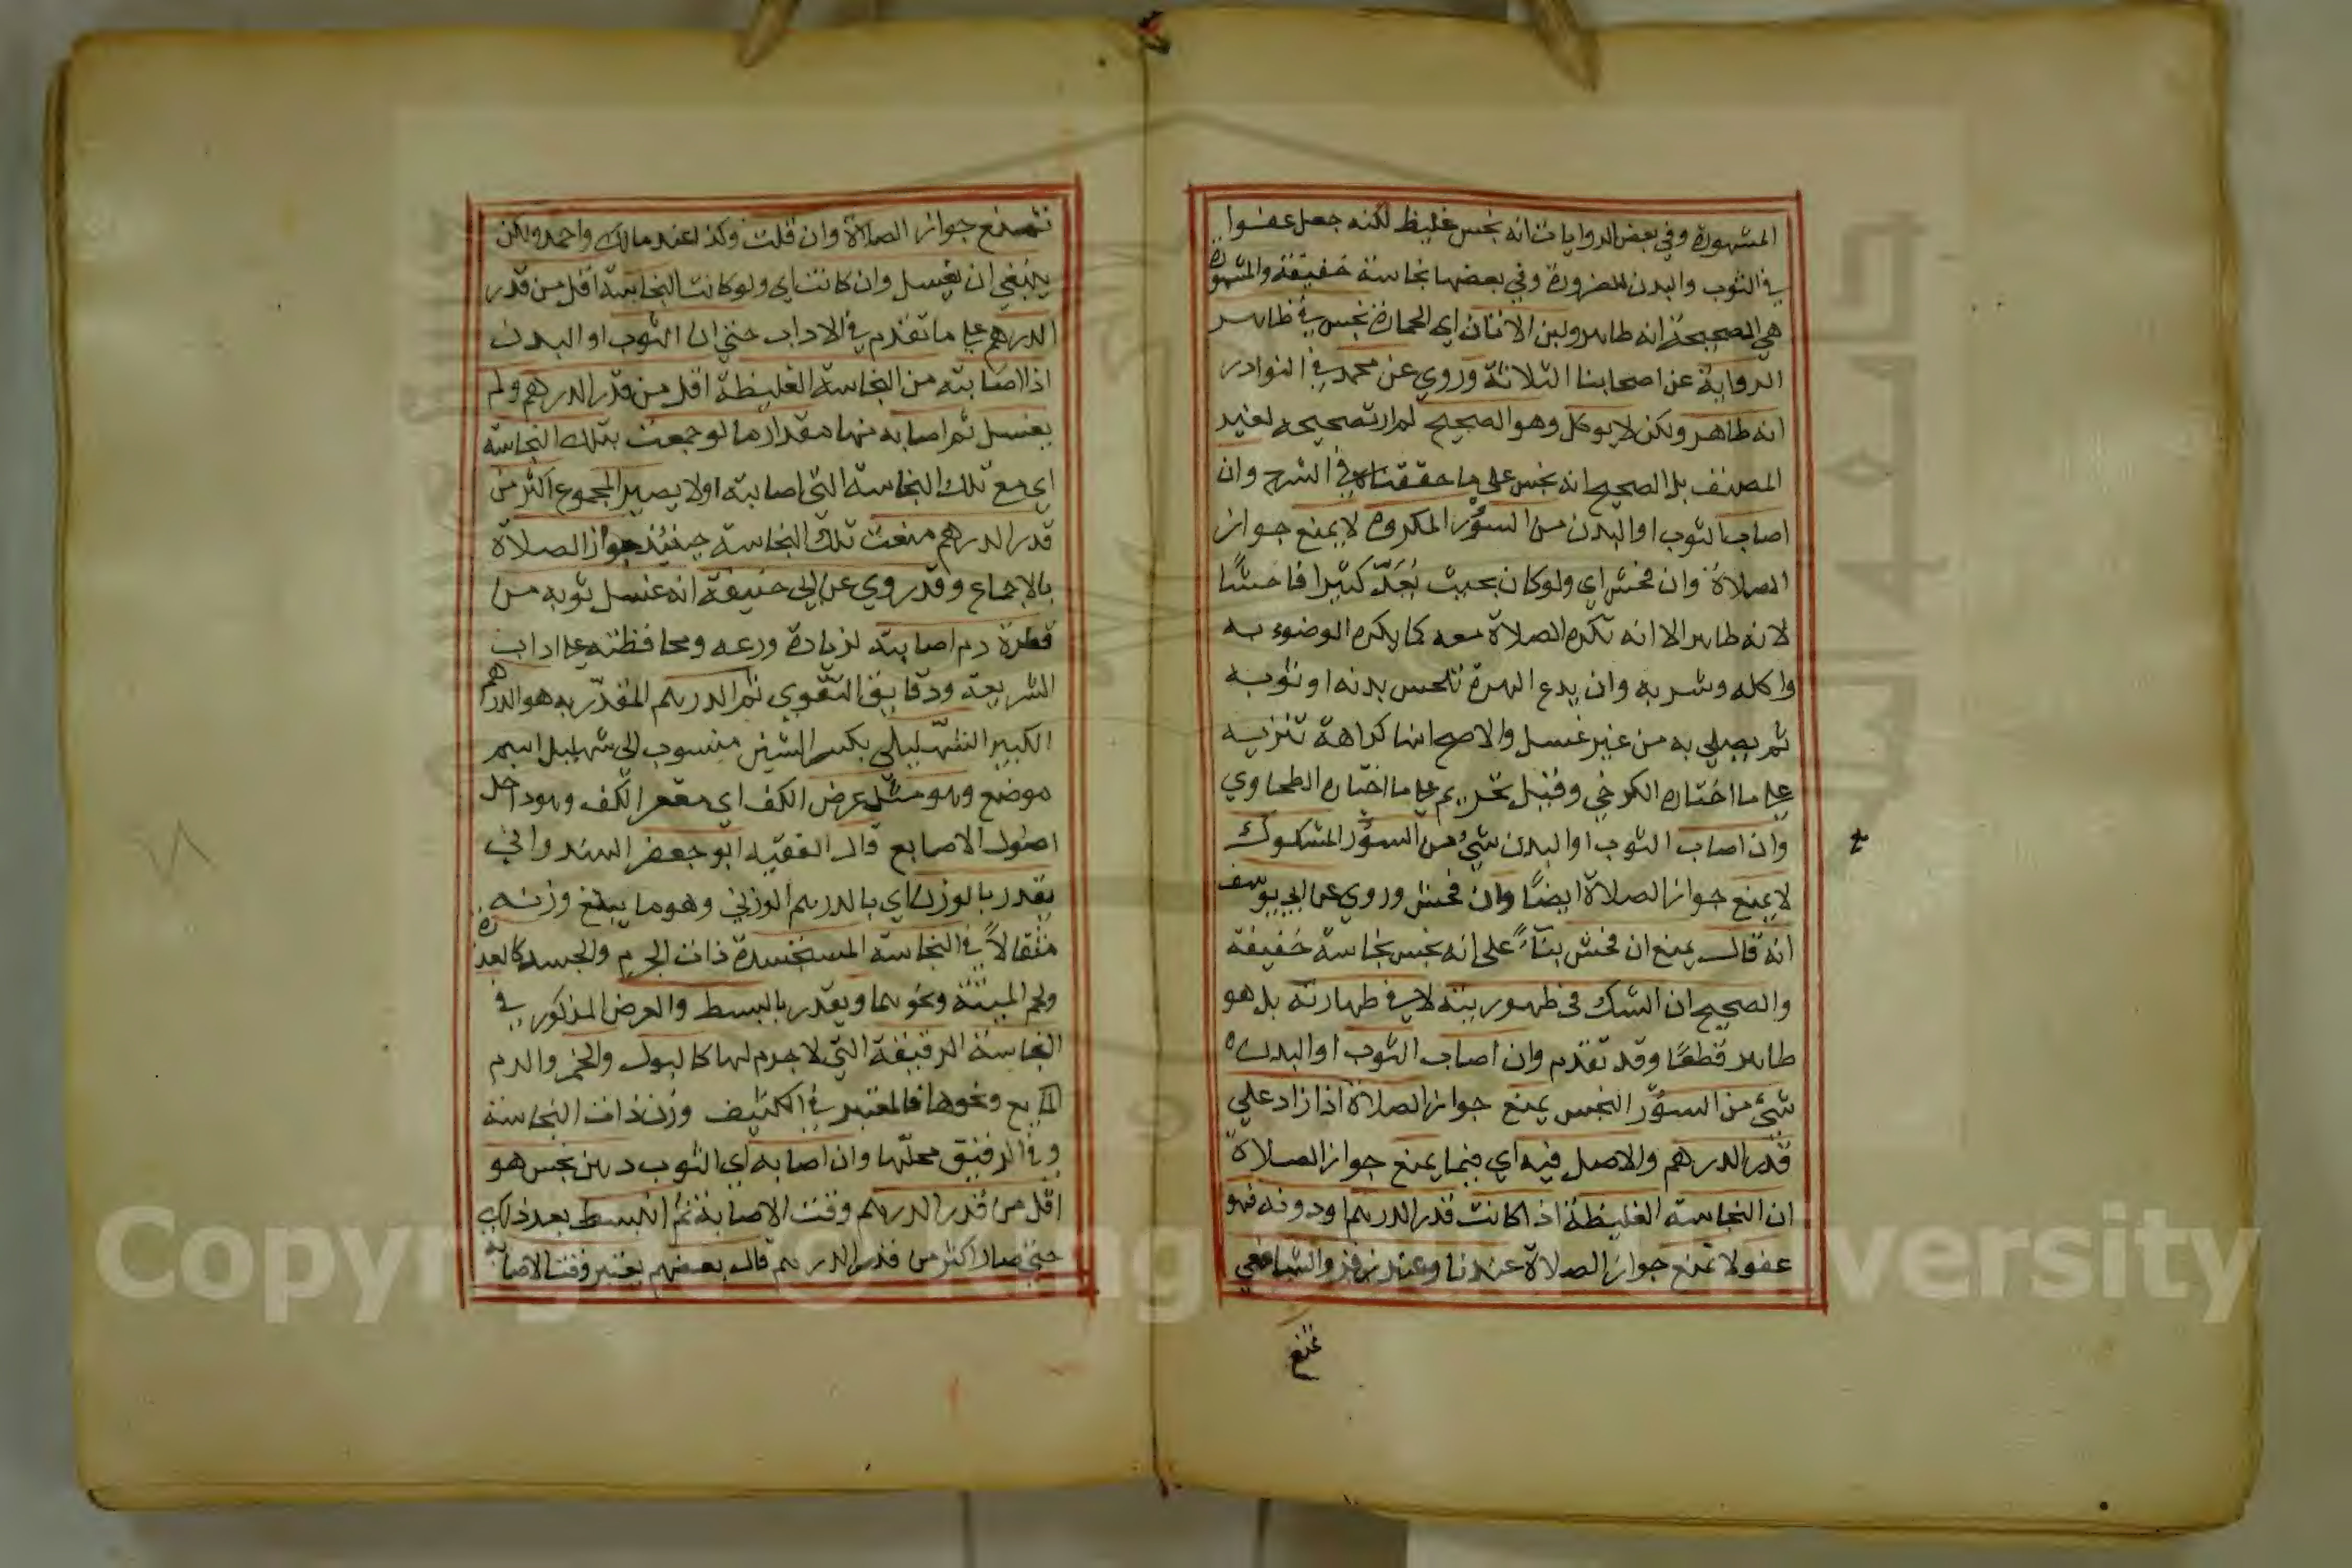 المشهورة وفي بعض الروايات انه نجس غليظ لكنه جعل عفوا
في الثوب والبدن للضرورة وفي بعضها نجاسته خفيفة والمشهورة
هي الصحيحة انه طاهر ولبن الاتان اي الحمارة نجس في ظاهر
الرواية عن اصحابنا الثلاثة وروي عن محمد في النوادر
انه طاهر ولكن لا يوكل وهو الصحيح لم ار تصحيحه لغير
المصنف بل الصحيح انه نجس على ما حققناه في الشرح وان
اصاب الثوب او البدن من السؤر المكروه لا يمنع جواز
الصلاة وان فحش اي ولو كان بحيث يُعَدّ كثيرا فاحشًا
لانه طاهر الا انه تكره الصلاة معه كما يكره الوضوء به
واكله وشربه وان يدع الهرة تلحس بدنه او ثوبه
ثم يصلي به من غير غسل والاصح انها كراهة تنزيه
على ما اختاره الكرخي وقيل تحريم على ما اختاره الطحاوي
وان اصاب الثوب او البدن شيء من السؤر المشكوك
لا يمنع جواز الصلاة ايضًا وان فحش وروي عن ابي يوسف
انه قال يمنع ان فحش بناءً على انه نجس نجاسة خفيفة
والصحيح ان الشك في طهوريته لا في طهارته بل هو
طاهر قطعًا وقد تقدم وان اصاب الثوب او البدن
شيء من السؤر النجس يمنع جواز الصلاة اذا زاد على
قدر الدرهم والاصل فيه اي فيما يمنع جواز الصلاة
ان النجاسة الغليظة اذا كانت قدر الدرهم او دونه فهو
عفو لا تمنع جواز الصلاة عندنا وعند زفر والشافعي
تمنع
تمنع جواز الصلاة وان قلت وكذا عند مالك واحمد ولكن
ينبغي ان يغسل وان كانت اي ولو كانت النجاسة اقل من قدر
الدرهم على ما تقدم في الاداب حتى ان الثوب او البدن
اذا اصابته من النجاسة الغليظة اقل من قدر الدرهم ولم
يغسل ثم اصابه منها مقدار ما لو جمعت بتلك النجاسة
اي مع تلك النجاسة التي اصابته اولا يصير المجموع اكثر من
قدر الدرهم منعت تلك النجاسة حينئذ جواز الصلاة
بالاجماع وقد روي عن ابي حنيفة انه غسل ثوبه من
قطرة دم اصابته لزيادة ورعه ومحافظته على اداب
الشريعة ودقايق التقوي ثم الدرهم المقدّر به هو الدرهم
الكبير الشهليلي بكسر الشين منسوب الى شهليل اسم
موضع وهو مثل عرض الكف اي مقعر الكف وهو داخل
اصول الاصابع قال الفقيه ابو جعفر الهندواني
يقدر بالوزن اي بالدرهم الوزني وهو ما يبلغ وزنه
مثقالاً في النجاسة المستجسدة ذات الجرم والجسد كالعذرة
ولحم الميتة ونحوهما ويقدر بالبسط والعرض المذكور في
النجاسة الرقيقة التي لا جرم لها كالبول والخمر والدم
المايع ونحوها فالمعتبر في الكثيف وزن ذات النجاسة
وفي الرقيق محلّها وان اصابه اي الثوب دهن نجس هو
اقل من قدر الدرهم وقت الاصابة ثم انبسط بعد ذلك
حتى صار اكثر من قدر الدرهم قال بعضهم يعتبر وقت الاصابة
Copyright © King Saud University